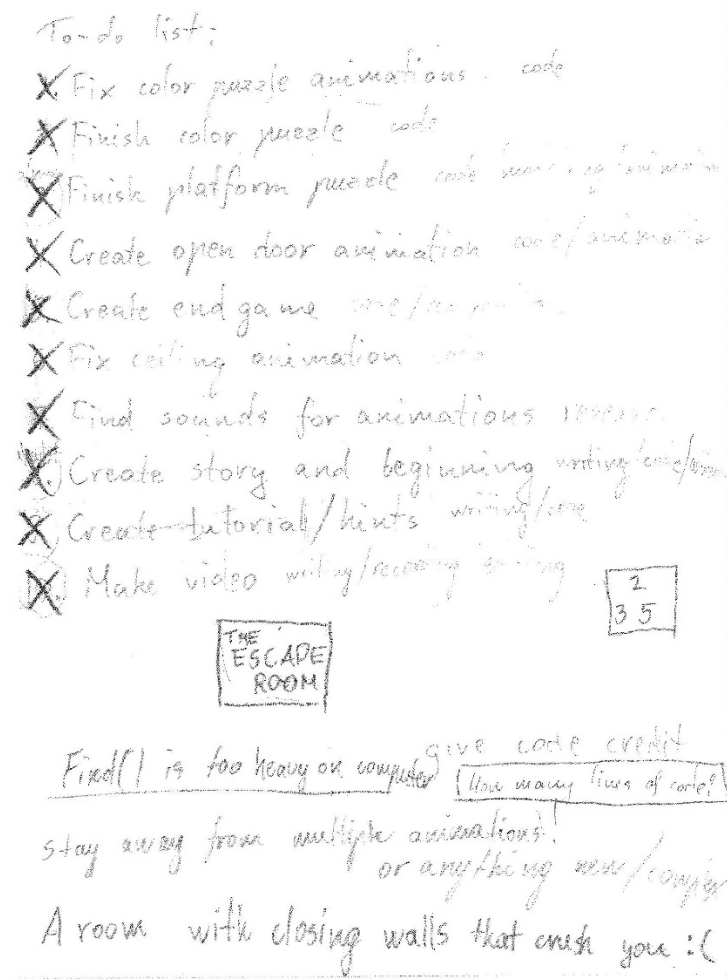 To-do list:
X. Fix color puzzle animations. code
X Finish color puzzle code
X Finish platform puzzle code
X Create open door animation code/animatio
X Create end game
X Fix ceiling animation code
X Find sounds for animations
X. Create story and beginning writing/code/
X Create tutorial/hints writing/code
X. Make video writing/recording
2
3 5
THE
ESCADE
ROOM
give code credit
Find() is too heavy on computer
How many lines of code?
stay away from multiple animations!
or anything new/complex
A room with closing walls that crush you :(